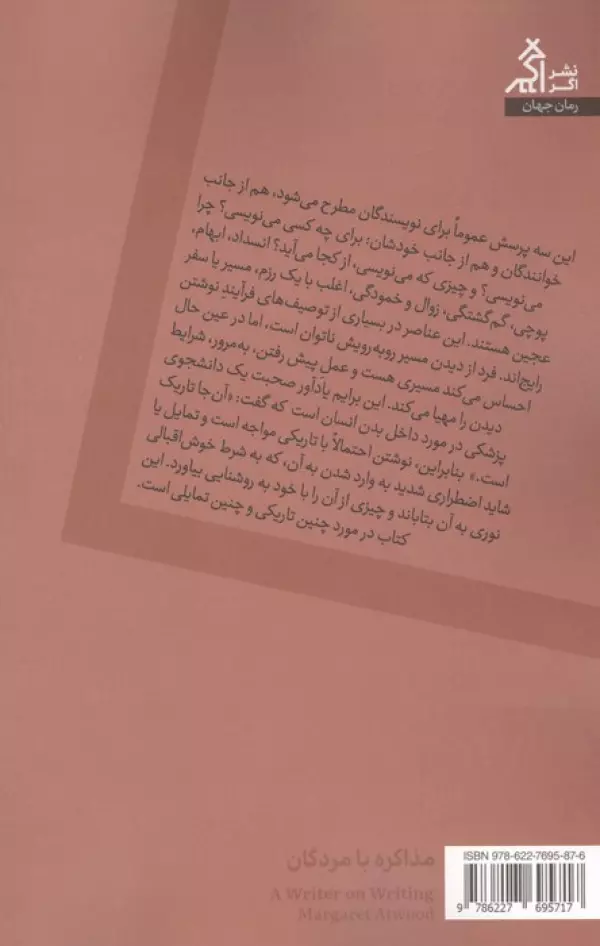 نشر
اگر
رمان جهان
این سه پرسش عموماً برای نویسندگان مطرح می‌شود، هم از جانب
خوانندگان و هم از جانب خودشان: برای چه کسی می‌نویسی؟ چرا
می‌نویسی؟ و چیزی که می‌نویسی، از کجا می‌آید؟ انسداد، ابهام،
پوچی، گم‌گشتگی، زوال و خمودگی، اغلب با یک رزم، مسیر یا سفر
عجین هستند. این عناصر در بسیاری از توصیف‌های فرآیندِ نوشتن
رایج‌اند. فرد از دیدن مسیر روبه‌رویش ناتوان است، اما در عین حال
احساس می‌کند مسیری هست و عمل پیش رفتن، به‌مرور، شرایط
دیدن را مهیا می‌کند. این برایم یادآور صحبت یک دانشجوی
پزشکی در مورد داخل بدن انسان است که گفت: «آن‌جا تاریک
است.» بنابراین، نوشتن احتمالاً با تاریکی مواجه است و تمایل یا
شاید اضطراری شدید به وارد شدن به آن، که به شرط خوش‌اقبالی
نوری به آن بتاباند و چیزی از آن را با خود به روشنایی بیاورد. این
کتاب در مورد چنین تاریکی و چنین تمایلی است.
مذاکره با مردگان
A Writer on Writing
Margaret Atwood
ISBN 978-622-7695-87-6
9 786227 695717